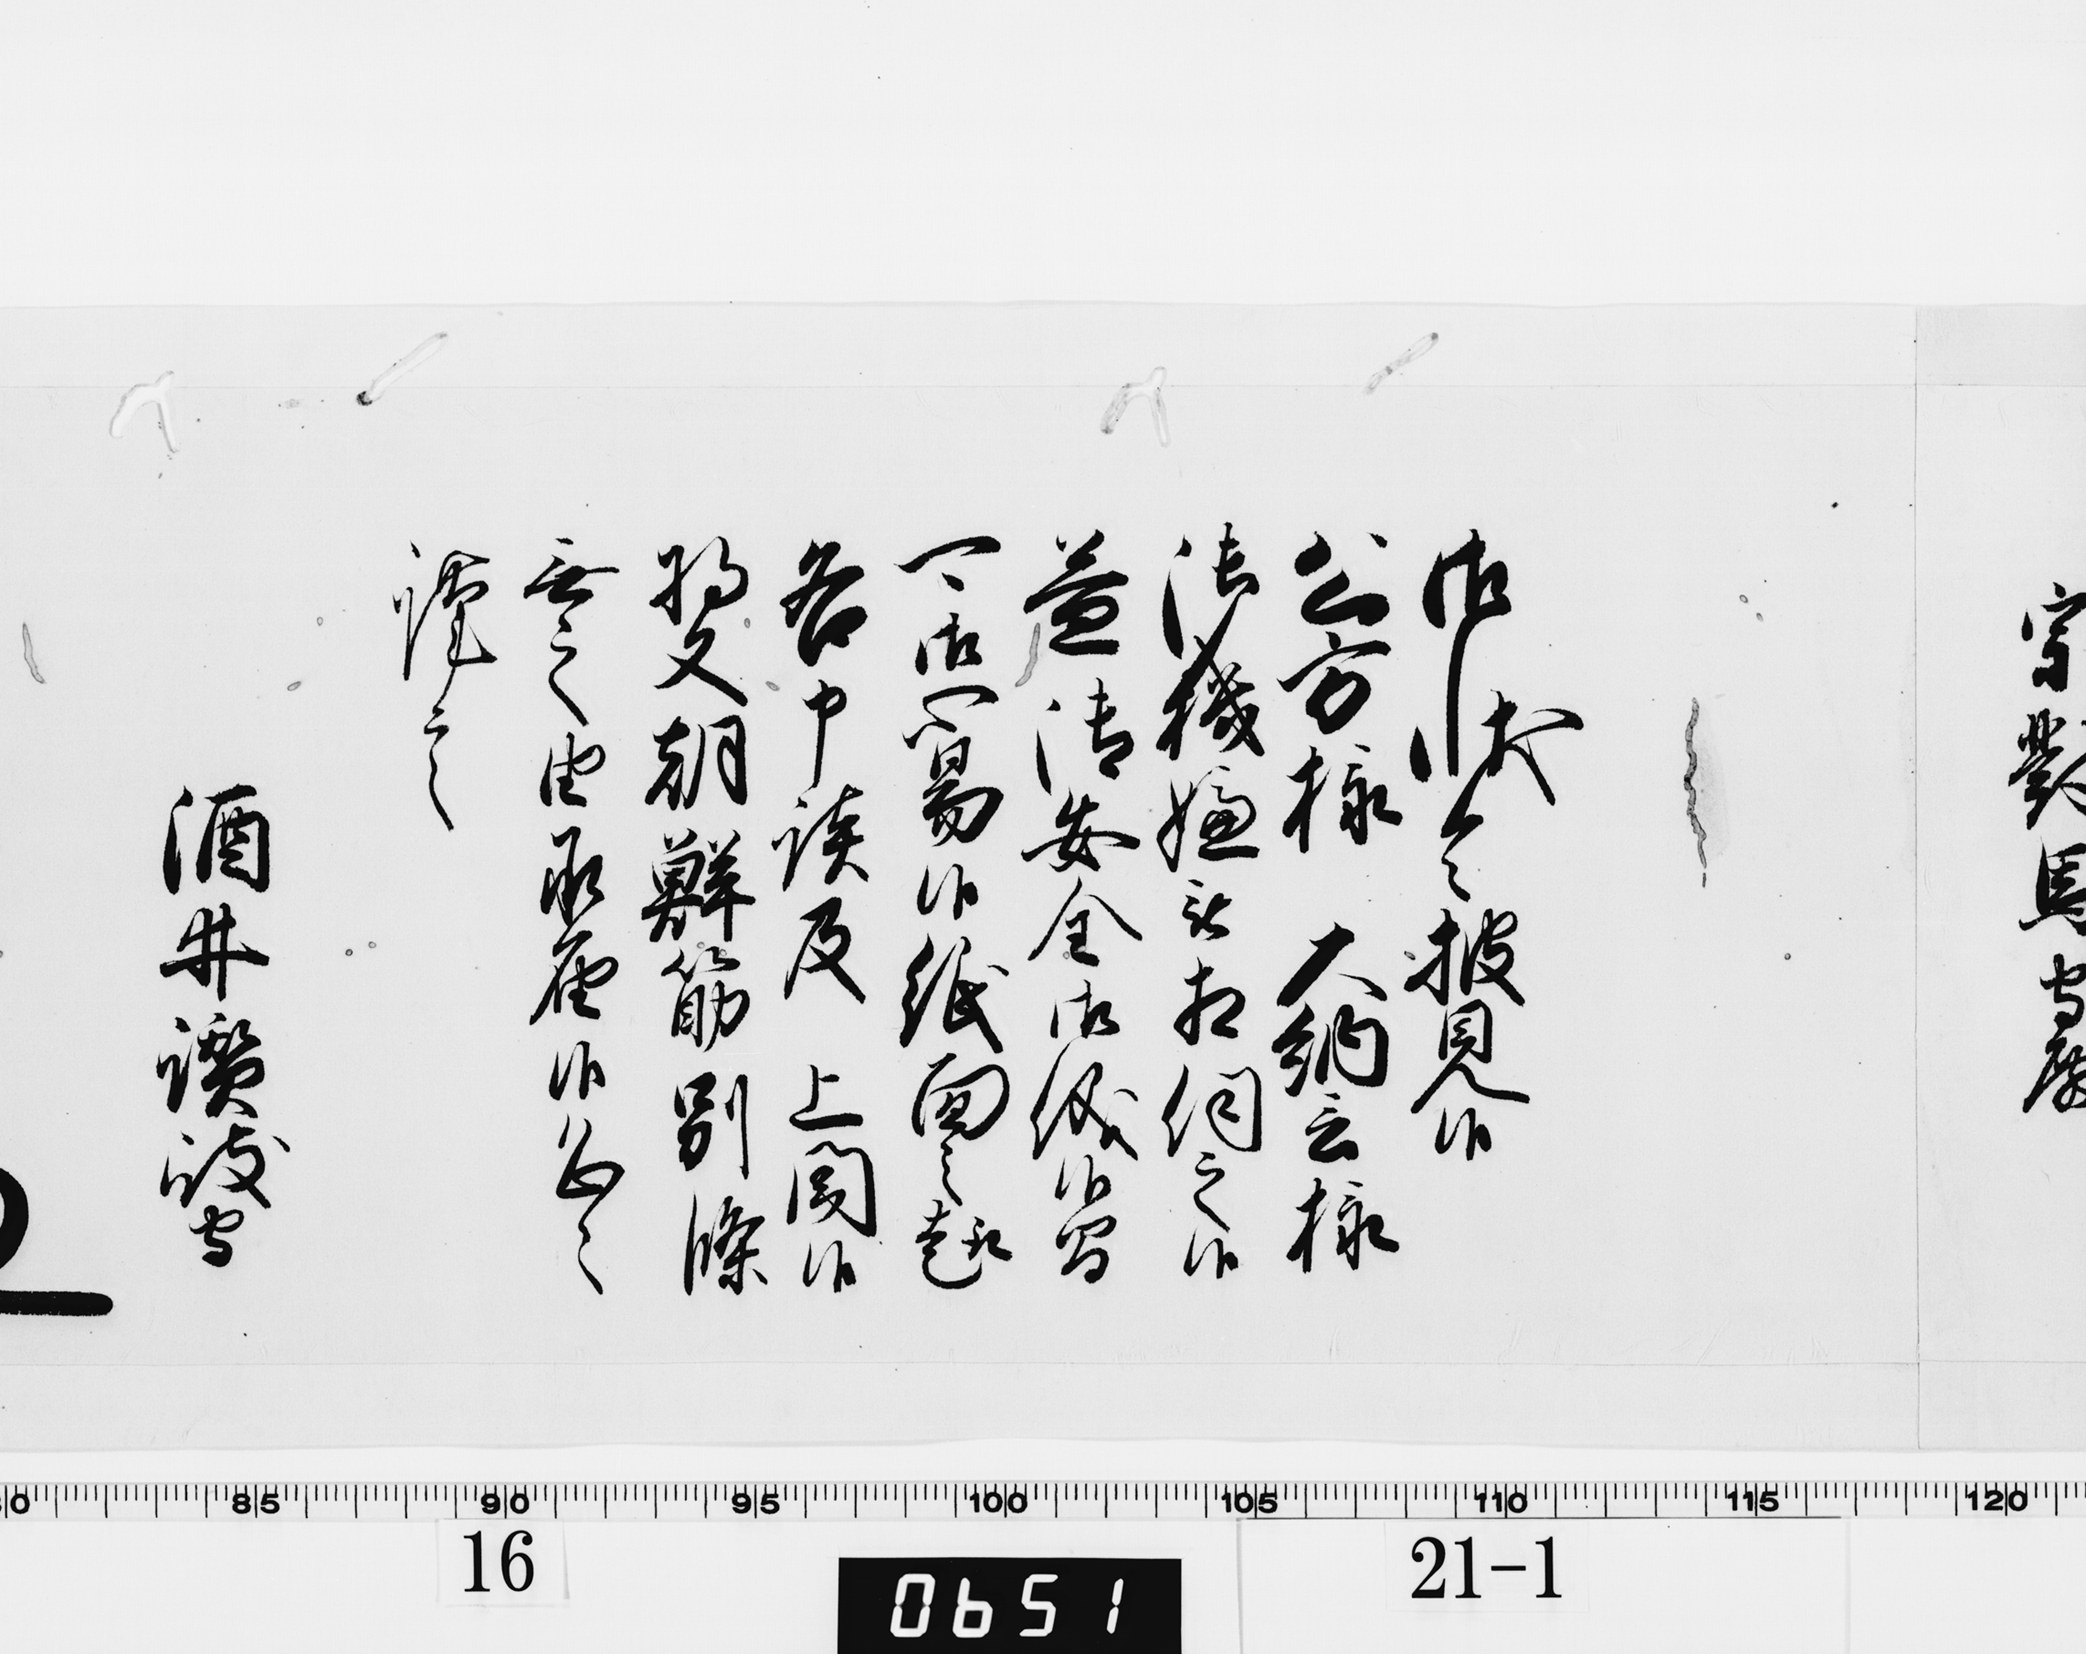 宗對馬守殿
御状令披見候
公方様 大納言様
御機嫌被相伺之候
益御安全御儀候間
可御心易候紙面之趣
各申談及 上聞候
將又朝鮮筋別條
無之由承届候恐々
謹言
酒井讃岐守
80 85 90 95 100 105 110 115 120
16
0651
21-1